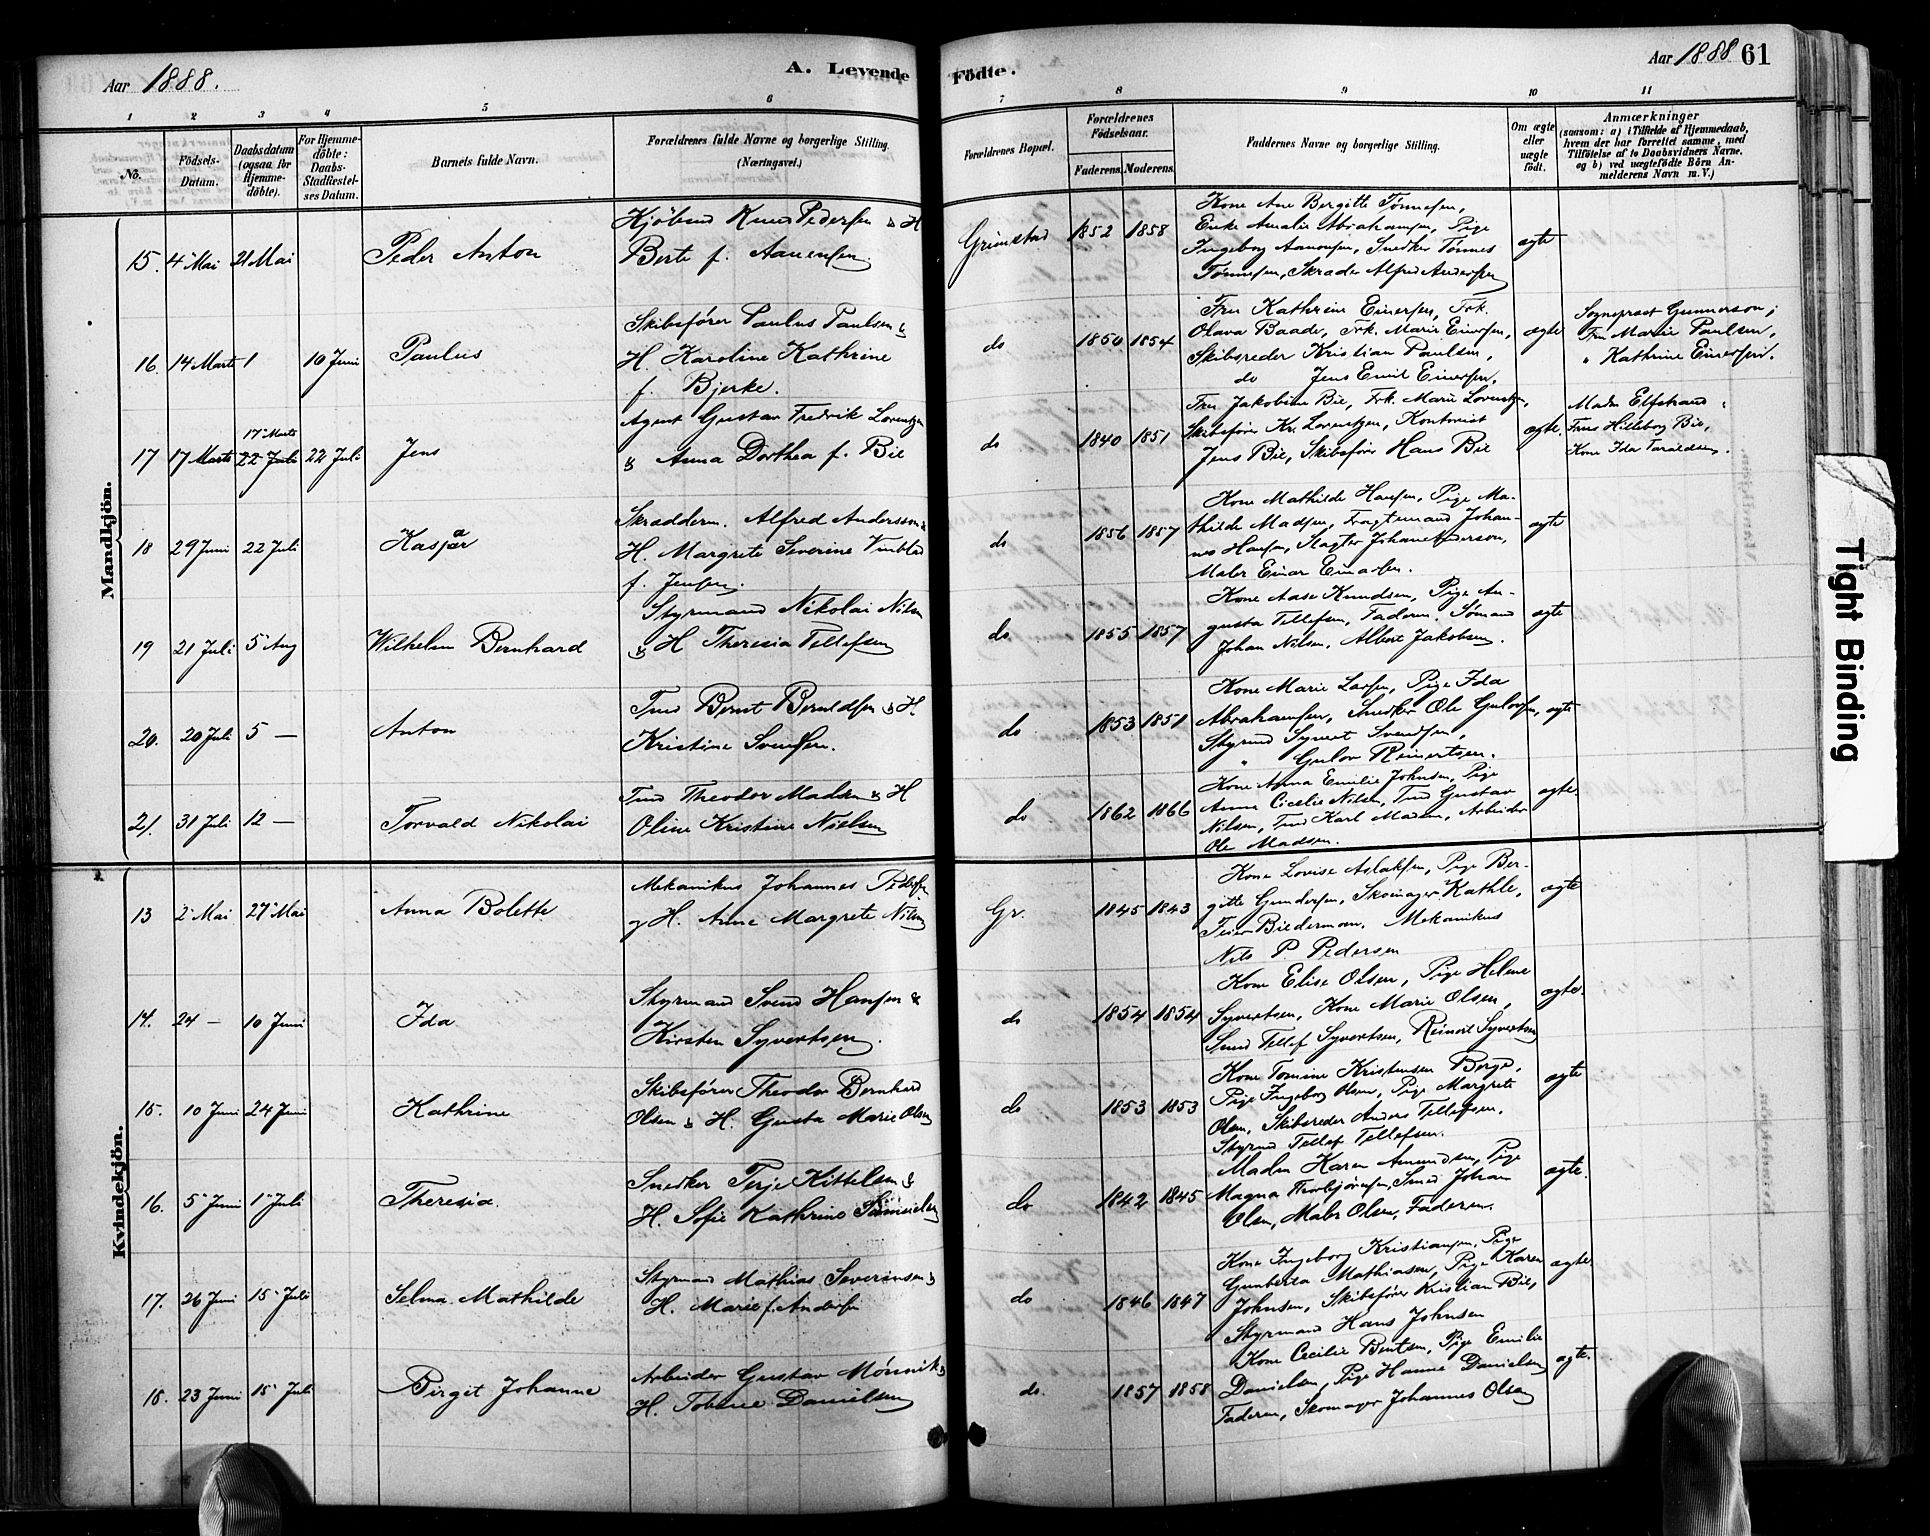 Aar 1888.
A. Levende
Födte.
Aar 1888 61
1 2 3 4 5 6 7 8 9 10 11
No.
Födsels-
Datum.
Daabsdatum
(ogsaa for
Hjemme-
döbte).
For Hjemme-
döbte:
Daabs-
Stadfæstel-
ses Datum.
Barnets fulde Navn.
Forældrenes fulde Navne og borgerlige Stilling.
(Næringsvei.)
Forældrenes Bopæl.
Forældrenes
Födselsaar.
Faderens. Moderens.
Faddernes Navne og borgerlige Stilling.
Om ægte
eller
uægte
födt.
Anmærkninger
(saasom: a) i Tilfælde af Hjemmedaab,
hvem der har forrettet samme, med
Tilföielse af to Daabsvidners Navne,
og b) ved uægtefödte Börn An-
melderens Navn m. V.)
Mandkjön.
15. 4 Mai 21 Mai
Peder Anton
Kjöbmd Knud Pedersen & H
Berte f. Aanensen.
Grimstad 1852 1858
Kone Ane Bergitte Tønnesen,
Enke Amalie Abrahamsen, Pige
Ingeborg Aanonsen, Snedker Tønnes
Tønnesen, Skræder Alfred Andersen
ægte
16. 14 Marts 1 10 Juni
Paulus
Skibsfører Paulus Paulsen &
H. Karoline Kathrine
f. Bjerke.
do 1850 1854
Fru Kathrine Einersen, Frk.
Olava Baade, Frk. Marie Einersen,
Skibsreder Kristian Paulsen,
do Jens Emil Einersen.
ægte
Sognepræst Gunnerson;
Fru Marie Paulsen,
" Kathrine Einersen.
17 17 Marts 17 Marts 22 Juli 22 Juli
Jens
Agent Gustav Fredrik Lorentzen
& Anna Dorthea f. Bie
do 1840 1851
Fru Jakobine Bie, Frk. Marie Lorentzen,
Skibsfører Kr. Lorentzen, Kontorist
Jens Bie, Skibsfører Hans Bie
ægte.
Madm Elfstrand,
Frus Hilleborg Bie,
Kone Ida Taraldsen.
18 29 Juni 22 Juli
Kaspar
Skrædderm. Alfred Andersson &
H. Margrete Severine
f. Jensen.
do 1856 1857
Kone Mathilde Hansen, Pige Ma-
thilde Madsen, Fragtemand Johan-
nes Hansen, Slagter Johan Anderson,
Maler Einar Einarsen.
ægte
19 21 Juli 5 Aug
Wilhelm Bernhard
Styrmand Nikolai Nilsen
& H Theresia Tellefsen
do. 1855 1857
Kone Aase Knudsen, Pige Au-
gusta Tellefsen, Faderen, Sømand
Johan Nilsen, Albert Jakobsen.
ægte
20. 20 Juli 5 —
Anton
Tmd Bernt Berntsen & H.
Kristine Svendsen.
do. 1853 1851
Kone Marie Larsen, Pige Ida
Abrahamsen, Snedker Ole Gulovsen,
Styrmd Syvert Svendsen,
" Gulov Reinertsen.
ægte
21. 31 Juli 12 —
Torvald Nikolai
Tmd Theodor Madsen & H
Oline Kristine Nielsen
do 1862 1866
Kone Anna Emilie Johnsen, Pige
Anna Cicelie Nilsen, Tmd Gustav
Nilsen, Tmd Karl Madsen, Arbeider
Ole Madsen.
ægte.
Kvindekjön.
13 2 Mai 27 Mai
Anna Bolette
Mekanikus Johannes Pedersen
og H. Anne Margrete Nilsen
Gr. 1845 1843
Kone Lovise Aslaksen, Pige Ber-
gitte Gundersen, Skomager Kathle,
Feier Biedermann, Mekanikus
Nils P. Pedersen
ægte
14. 24 — 10 Juni
Ida
Styrmand Svend Hansen &
Kirsten Syvertsen.
do 1854 1854
Kone Elise Olsen, Pige Helene
Syvertsen, Kone Marie Olsen,
Smd Tellef Syvertsen, Reinert Syvertsen
ægte.
15. 10 Juni 24 Juni
Kathrine
Skibsfører Theodor Bernhard
Olsen & H. Gusta Marie Olsen
do 1853 1853
Kone Tomine Kristensen Berge,
Pige Ingeborg Olsen, Pige Margrete
Olsen, Skibsreder Anders Tellefsen.
Styrmd Tellef Tellefsen.
ægte
16. 5 Juni 1 Juli
Theresia.
Snedker Terje Kittelsen &
H. Sofie Kathrine
do 1842 1845
Madm Karen Amundsen, Pige
Magna Thorbjørnsen, Smed Johan
Olsen, Maler Olsen, Faderen.
ægte.
17. 26 Juni 15 Juli
Selma Mathilde
Styrmand Mathias Severinsen &
H. Marie f. Andersen
do 1846 1847
Kone Ingeborg Kristiansen, Pige
Gunberta Mathiasen, Pige Karen
Johnsen, Skibsfører Kristian Bie,
Styrmand Hans Johnsen
ægte
18. 23 Juni 15 Juli
Birgit Johanne
Arbeider Gustav Mønnik &
H. Tobine Danielsen
do. 1857 1858
Kone Cecilie Bentsen, Pige Emilie
Danielsen, Pige Hanne Danielsen
Faderen, Skomager Johannes Olsen
ægte.
Tight Binding